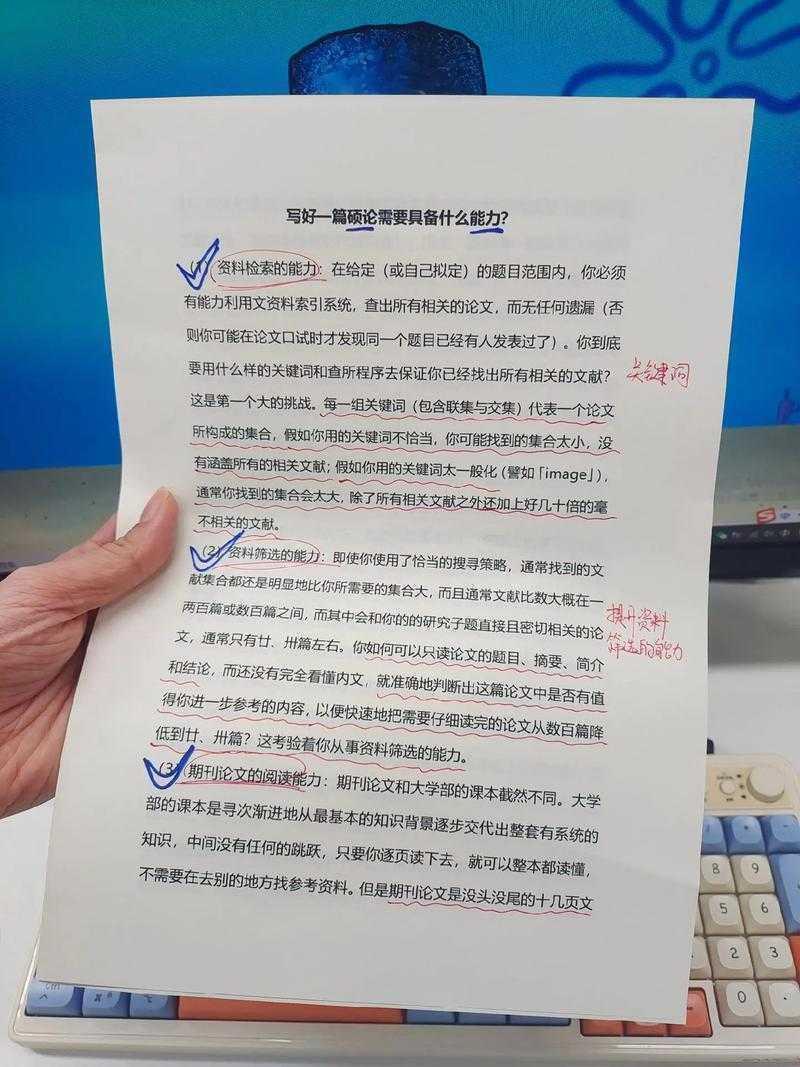 写好一篇硕论需要具备什么能力?
(1)资料检索的能力：在给定（或自己拟定）的题目范围内，你必须
有能力利用文资料索引系统，查出所有相关的论文，而无任何遗漏（否
则你可能在论文口试时才发现同一个题目已经有人发表过了）。你到底
要用什么样的关键词和查所程序去保证你已经找出所有相关的文献？
关键词
这是第一个大的挑战。每一组关键词（包含联集与交集）代表一个论文
所构成的集合，假如你用的关键词不恰当，你可能找到的集合太小，没
有涵盖所有的相关文献；假如你用的关键词太一般化（譬如「image」），
通常你找到的集合会太大，除了所有相关文献之外还加上好几十倍的毫
不相关的文献。
(2)资料筛选的能力：即使你使用了恰当的搜寻策略，通常找到的文
献集合都还是明显地比你所需要的集合大，而且通常文献比数大概在一
两百篇或数百篇之间，而其中会和你的的研究子题直接且密切相关的论
提升资料
筛选的能力
文，通常只有廿、卅篇左右。你如何可以只读论文的题目、摘要、简介
和结论，而还没有完全看懂内文，就准确地判断出这篇论文中是否有值
得你进一步参考的内容，以便快速地把需要仔细读完的论文从数百篇降
低到廿、卅篇？这考验着你从事资料筛选的能力。
(3)期刊论文的阅读能力：期刊论文和大学部的课本截然不同。大学
部的课本是寻次渐进地从最基本的知识背景逐步交代出整套有系统的
知识，中间没有任何的跳跃，只要你逐页读下去，就可以整本都读懂，
不需要在去别的地方找参考资料。但是期刊论文是没头没尾的十几页文
8 9
5 6
2 3
0